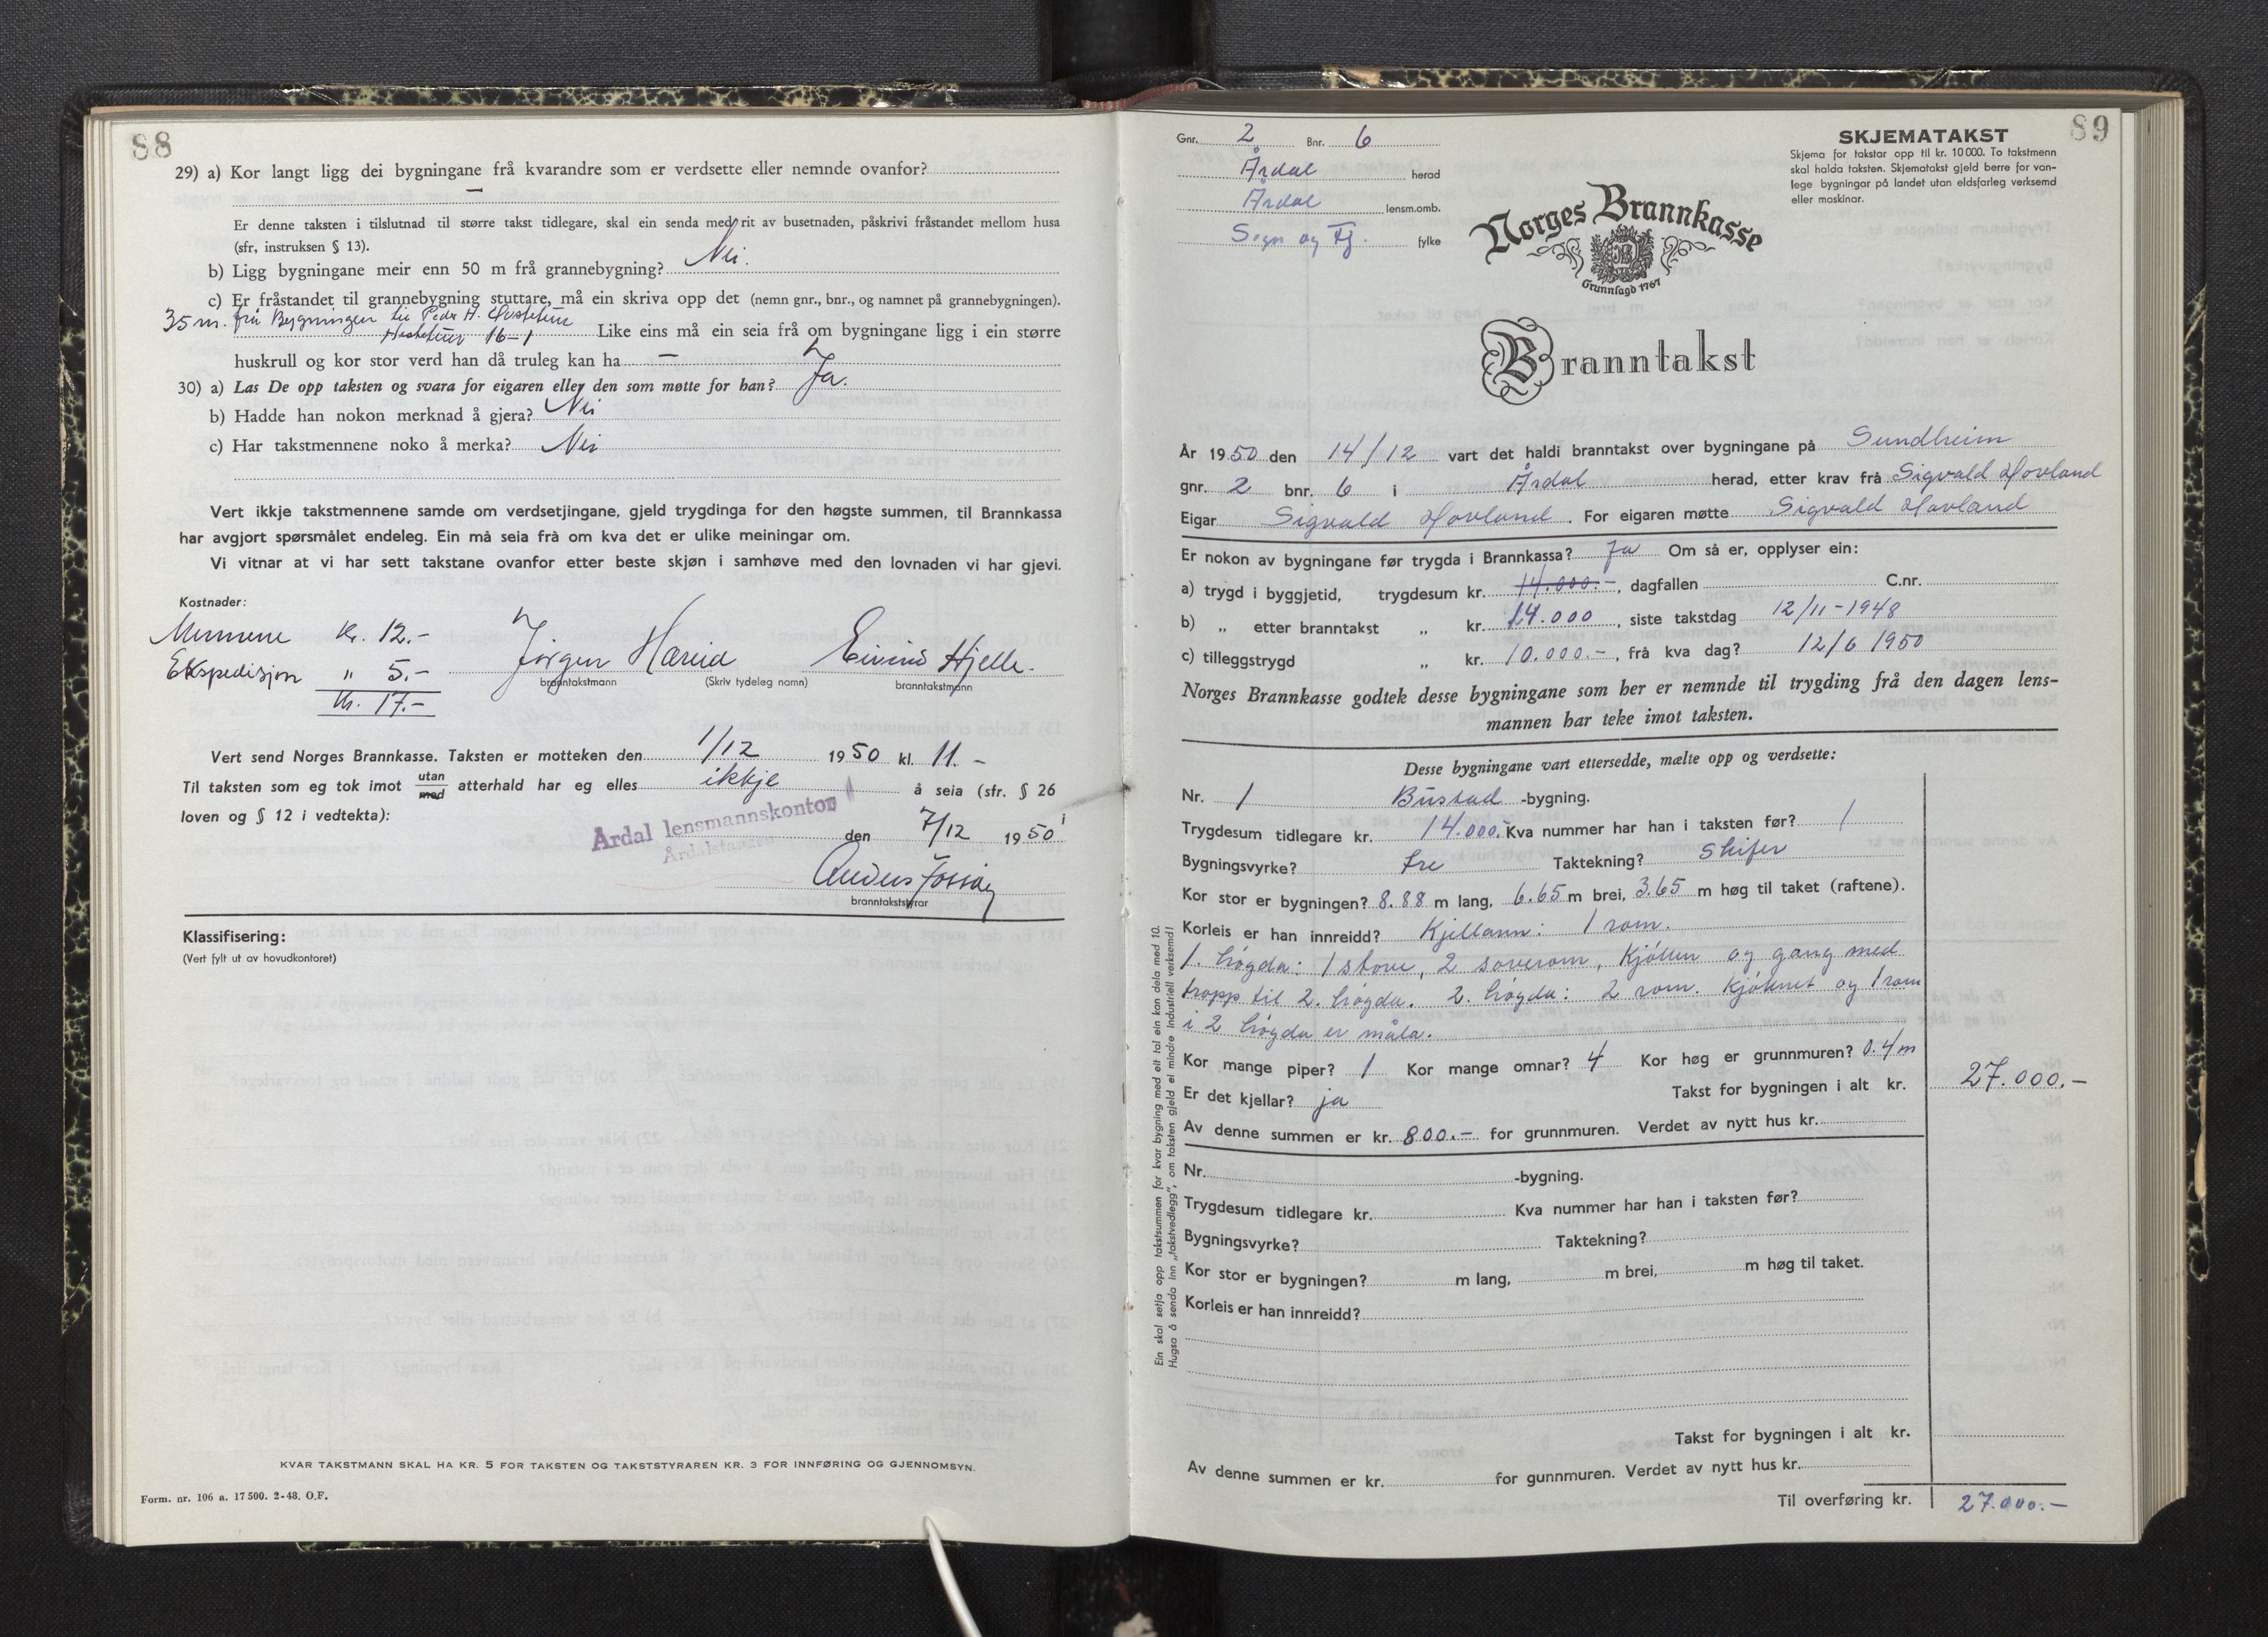 88
29) a) Kor langt ligg dei bygningane frå kvarandre som er verdsette eller nemnde ovanfor?
—
Er denne taksten i tilslutnad til større takst tidlegare, skal ein senda med rit av busetnaden, påskrivi fråstandet mellom husa
(sfr, instruksen § 13).
b) Ligg bygningane meir enn 50 m frå grannebygning? Nei.
c) Er fråstandet til grannebygning stuttare, må ein skriva opp det (nemn gnr., bnr., og namnet på grannebygningen).
35 m. frå Bygningen til Peder H.
16-1 Like eins må ein seia frå om bygningane ligg i ein større
huskrull og kor stor verd han då truleg kan ha —
30) a) Las De opp taksten og svara for eigaren eller den som møtte for han? Ja.
b) Hadde han nokon merknad å gjera? Nei
c) Har takstmennene noko å merka? Nei
Vert ikkje takstmennene samde om verdsetjingane, gjeld trygdinga for den høgste summen, til Brannkassa
har avgjort spørsmålet endeleg. Ein må seia frå om kva det er ulike meiningar om.
Vi vitnar at vi har sett takstane ovanfor etter beste skjøn i samhøve med den lovnaden vi har gjevi.
Kostnader:
Mennene kr. 12.-
Ekspedisjon " 5.-
Kr. 17.-
Jørgen Hæreid Eivind Hjelle.
branntakstmann (Skriv tydeleg namn) branntakstmann
Vert send Norges Brannkasse. Taksten er motteken den 1/12 1950 kl. 11.-
Til taksten som eg tok imot utan/med atterhald har eg elles ikkje å seia (sfr. § 26 i
loven og § 12 i vedtekta):
Årdal lensmannskontor
Årdalstangen
den 7/12 1950
Anders
branntakststyrar
Klassifisering:
(Vert fylt ut av hovudkontoret)
KVAR TAKSTMANN SKAL HA KR. 5 FOR TAKSTEN OG TAKSTSTYRAREN KR. 3 FOR INNFØRING OG GJENNOMSYN.
Form. nr. 106 a. 17 500. 2-48. O.F.
89
Gnr. 2 Bnr. 6
Årdal herad
Årdal lensm.omb.
Sogn og Fj. fylke
SKJEMATAKST
Skjema for takstar opp til kr. 10 000. To takstmenn
skal halda taksten. Skjematakst gjeld berre for van-
lege bygningar på landet utan eldsfarleg verksemd
eller maskinar.
Norges Brannkasse
Grunnlagd 1767
Branntakst
År 1950 den 14/12 vart det haldi branntakst over bygningane på Sundheim
gnr. 2 bnr. 6 i Årdal herad, etter krav frå Sigvald Hovland
Eigar Sigvald Hovland. For eigaren møtte Sigvald Hovland
Er nokon av bygningane før trygda i Brannkassa? Ja Om så er, opplyser ein:
a) trygd i byggjetid, trygdesum kr. 14.000.-, dagfallen C.nr.
b) „ etter branntakst „ kr. 14.000, siste takstdag 12/11-1948
c) tilleggstrygd „ kr. 10.000.-, frå kva dag? 12/6 1950
Norges Brannkasse godtek desse bygningane som her er nemnde til trygding frå den dagen lens-
mannen har teke imot taksten.
Desse bygningane vart ettersedde, mælte opp og verdsette:
Nr. 1 Bustad -bygning.
Trygdesum tidlegare kr. 14.000.- Kva nummer har han i taksten før? 1
Bygningsvyrke? tre Taktekning? Skifer
Kor stor er bygningen? 8.88 m lang, 6.65 m brei, 3.65 m høg til taket (raftene).
Korleis er han innreidd? Kjellaren: 1 rom.
1. høgda: 1 stove, 2 soverom, kjøken og gang med
tropp til 2. høgda. 2. høgda: 2 rom. Kjøknet og 1 rom
i 2 høgda er måla.
Kor mange piper? 1 Kor mange omnar? 4 Kor høg er grunnmuren? 0.4 m
Er det kjellar? ja Takst for bygningen i alt kr. 27.000.-
Av denne summen er kr. 800.- for grunnmuren. Verdet av nytt hus kr.
Nr. -bygning.
Trygdesum tidlegare kr. Kva nummer har han i taksten før?
Bygningsvyrke? Taktekning?
Kor stor er bygningen? m lang, m brei, m høg til taket.
Korleis er han innreidd?
Takst for bygningen i alt kr.
Av denne summen er kr. for gunnmuren. Verdet av nytt hus kr.
Til overføring kr. 27.000.-
Ein skal setja opp takstsummen for kvar bygning med eit tal ein kan dela med 10.
Hugsa å senda inn „takstvedlegg", om taksten gjeld ei mindre industriell verksemd!